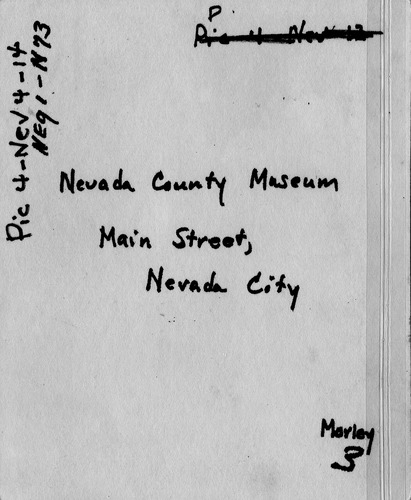 P
Pic 4 Nev 12
Pic 4-Nev 4-14
NEg 1-N93
Nevada County Museum
Main Street,
Nevada City
Morley
3